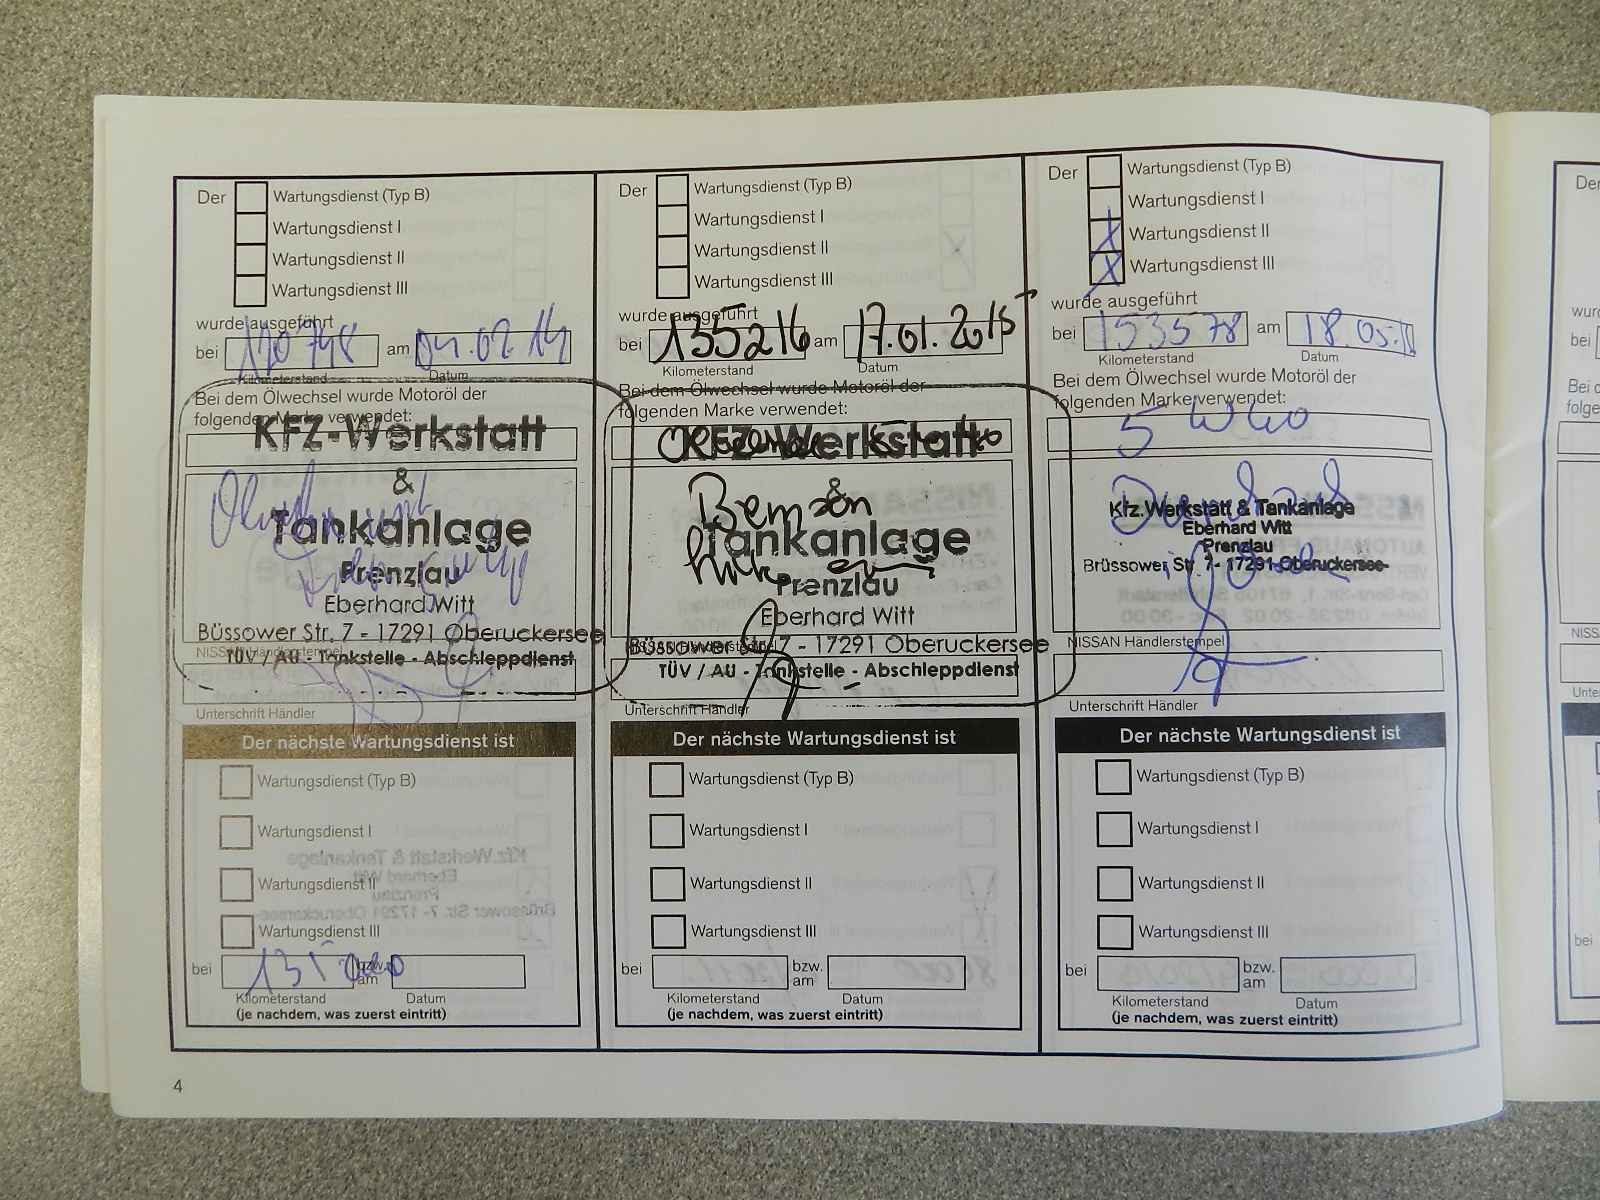 Der Wartungsdienst (Typ B)
Wartungsdienst I
Wartungsdienst II
Wartungsdienst III
wurde ausgeführt
bei 120748 am 04.02.14
Kilometerstand Datum
Bei dem Ölwechsel wurde Motoröl der
folgenden Marke verwendet:
KFZ-Werkstatt
&
Tankanlage
Prenzlau
Eberhard Witt
Büssower Str. 7 - 17291 Oberuckersee
NISSAN Händlerstempel
TÜV / AU - Tankstelle - Abschleppdienst
Unterschrift Händler
Der nächste Wartungsdienst ist
Wartungsdienst (Typ B)
Wartungsdienst I
Wartungsdienst II
Wartungsdienst III
bei bzw. am
Kilometerstand Datum
(je nachdem, was zuerst eintritt)
Der Wartungsdienst (Typ B)
Wartungsdienst I
Wartungsdienst II
Wartungsdienst III
wurde ausgeführt
bei 135216 am 17.01.2015
Kilometerstand Datum
Bei dem Ölwechsel wurde Motoröl der
folgenden Marke verwendet:
KFZ-Werkstatt
&
Tankanlage
Prenzlau
Eberhard Witt
Büssower Str. 7 - 17291 Oberuckersee
NISSAN Händlerstempel
TÜV / AU - Tankstelle - Abschleppdienst
Unterschrift Händler
Der nächste Wartungsdienst ist
Wartungsdienst (Typ B)
Wartungsdienst I
Wartungsdienst II
Wartungsdienst III
bei bzw. am
Kilometerstand Datum
(je nachdem, was zuerst eintritt)
Der Wartungsdienst (Typ B)
Wartungsdienst I
X Wartungsdienst II
X Wartungsdienst III
wurde ausgeführt
bei 153578 am 18.05.
Kilometerstand Datum
Bei dem Ölwechsel wurde Motoröl der
folgenden Marke verwendet:
5 W 40
Kfz.Werkstatt & Tankanlage
Eberhard Witt
Prenzlau
Brüssower Str. 7- 17291 Oberuckersee
NISSAN Händlerstempel
Unterschrift Händler
Der nächste Wartungsdienst ist
Wartungsdienst (Typ B)
Wartungsdienst I
Wartungsdienst II
Wartungsdienst III
bei bzw. am
Kilometerstand Datum
(je nachdem, was zuerst eintritt)
4